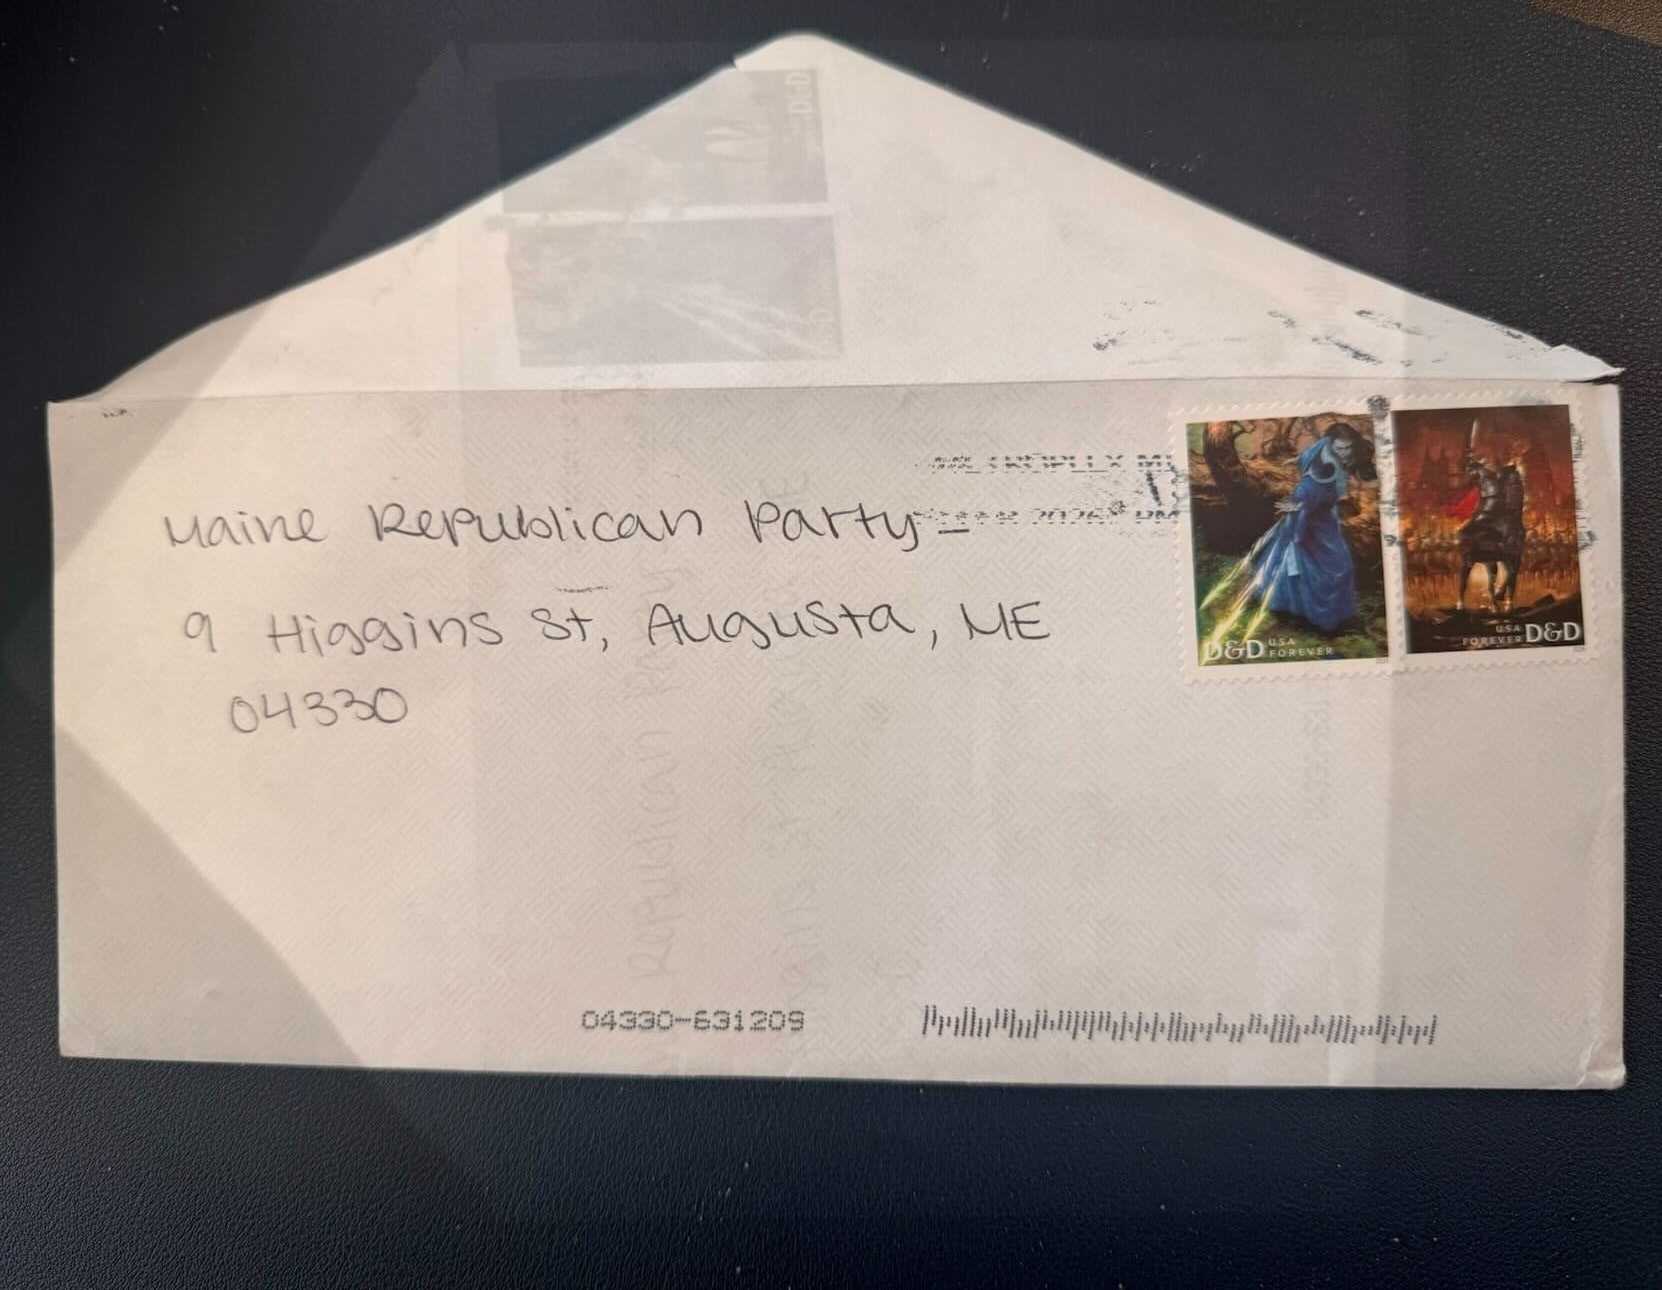 Maine Republican Party
9 Higgins St, Augusta, ME
04330
2026 PM
D&D USA
FOREVER
USA
FOREVER D&D
04330-631209